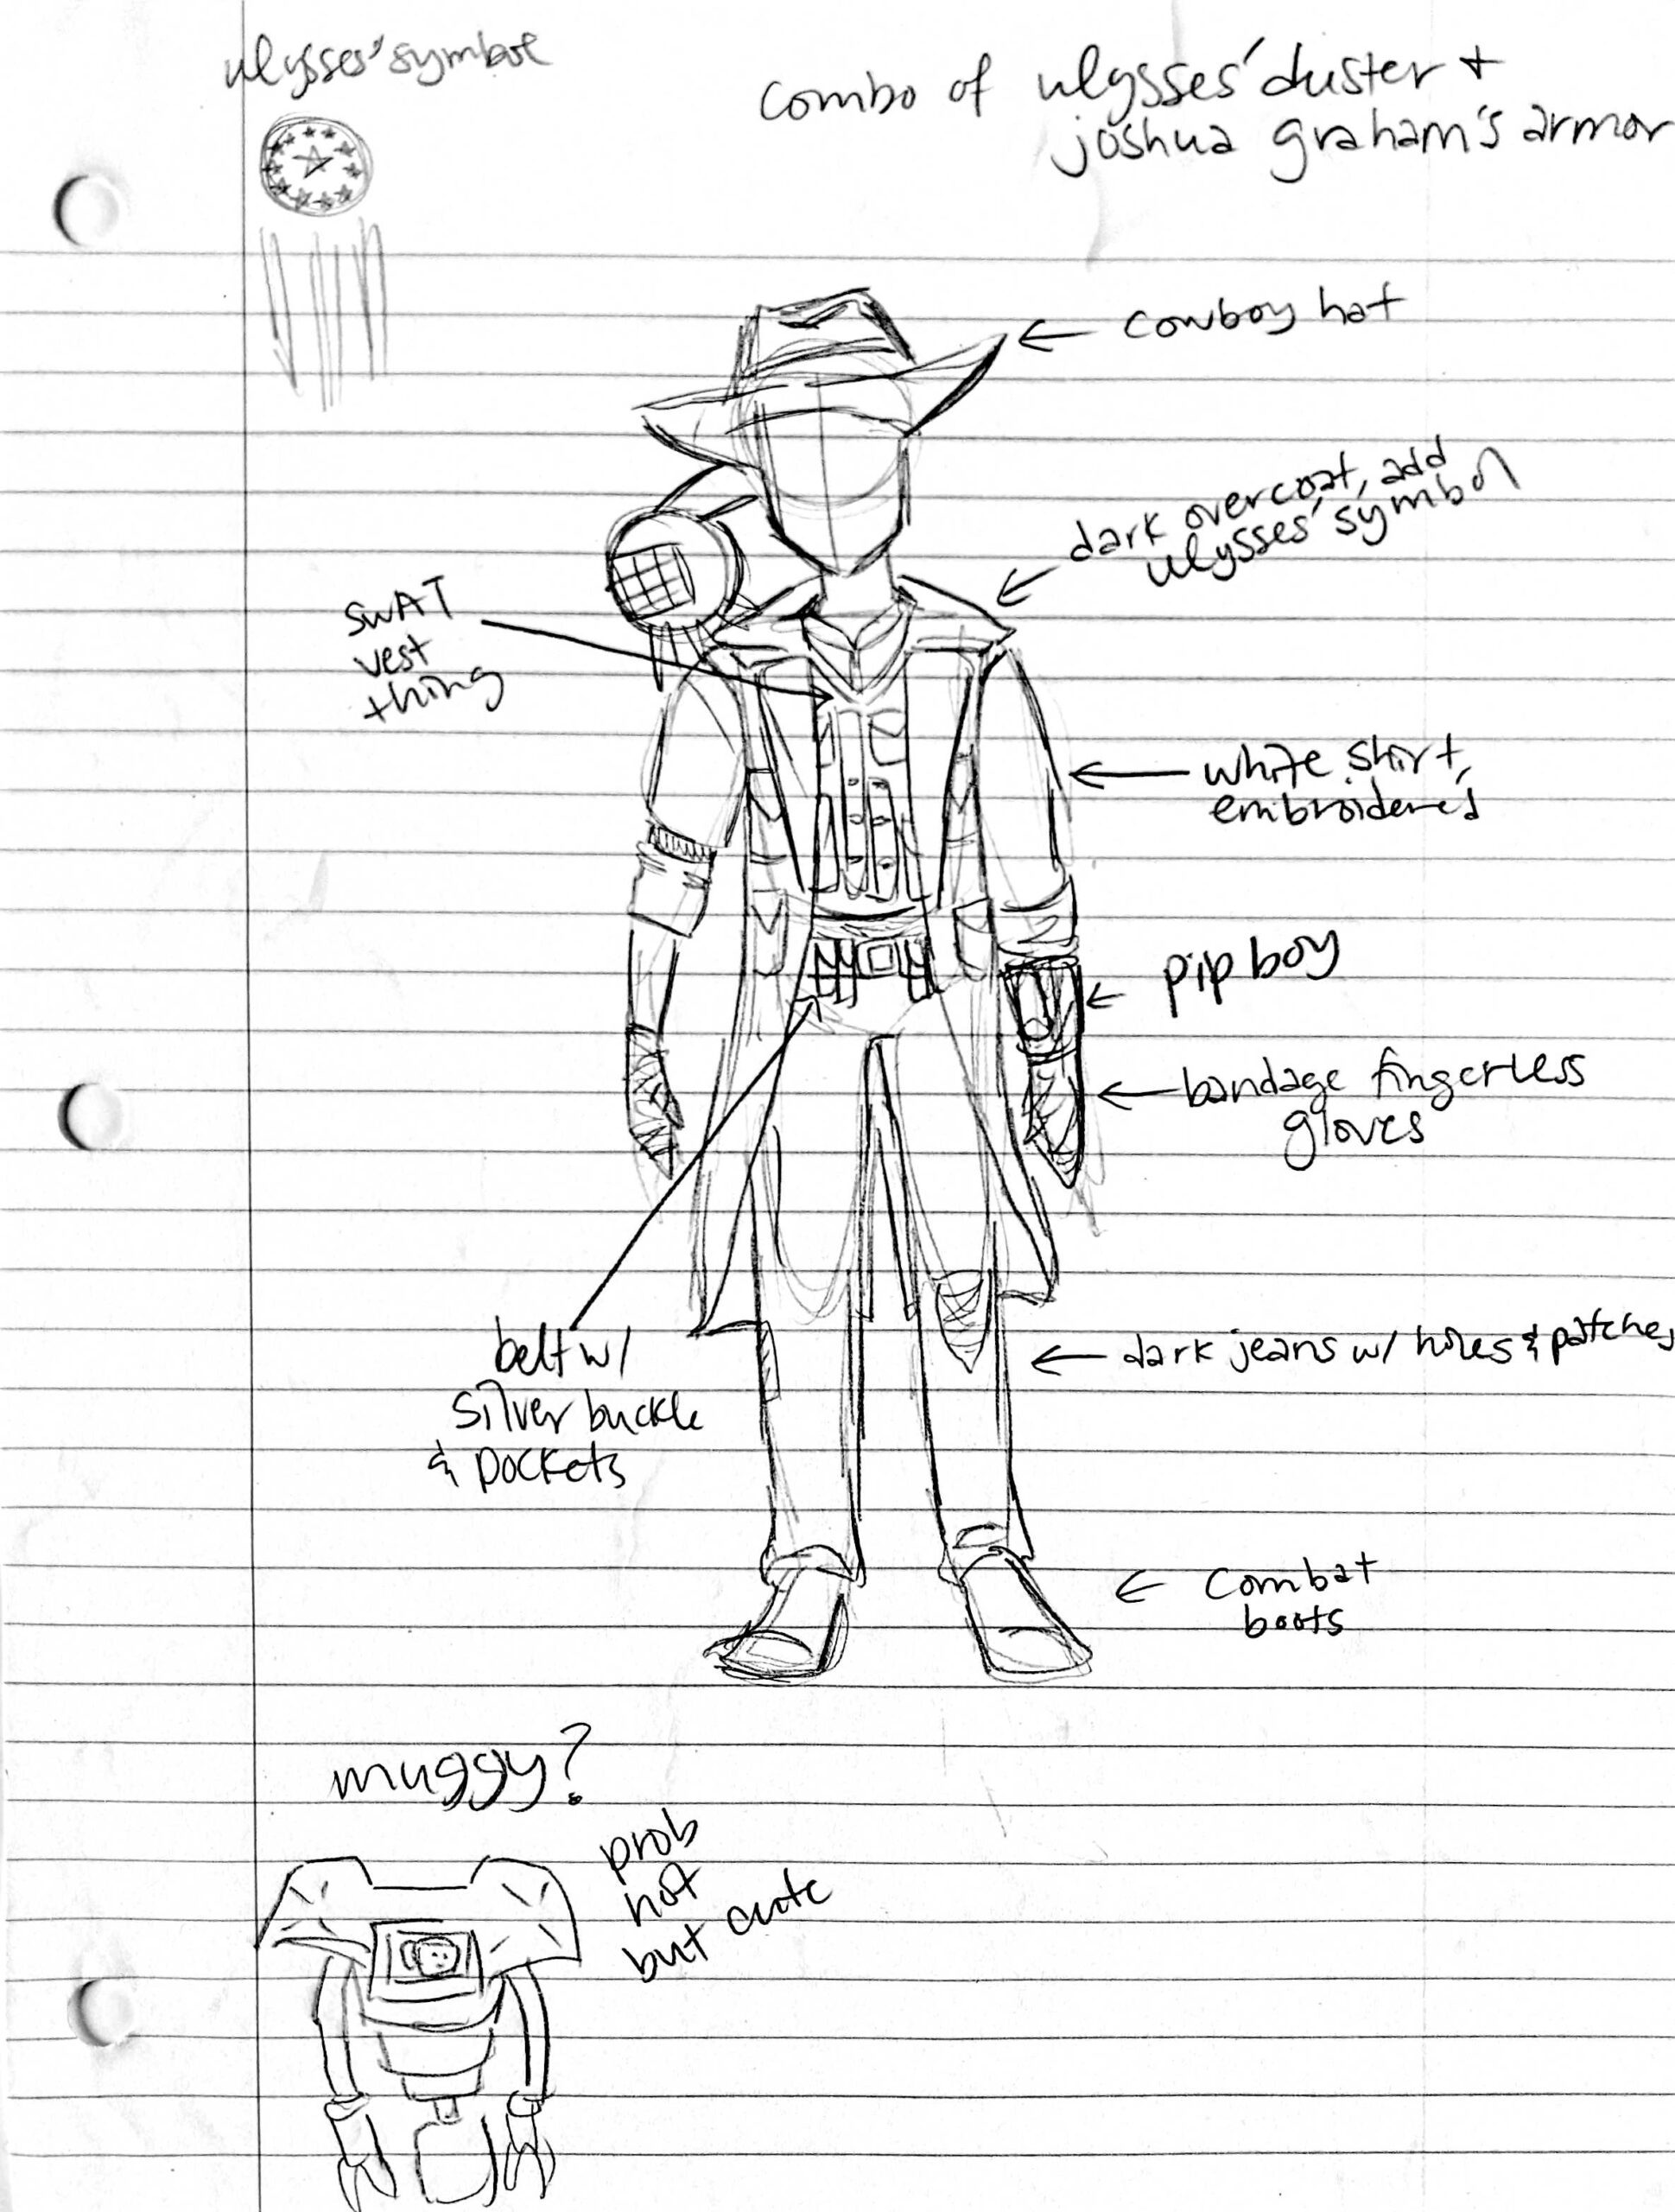 ulysses' symbol
combo of ulysses' duster +
joshua graham's armor
cowboy hat
dark overcoat, add
ulysses' symbol
SWAT
vest
thing
white shirt,
embroidered
pip boy
bandage fingerless
gloves
belt w/
silver buckle
& pockets
dark jeans w/ holes & patches
combat
boots
muggy?
prob
not
but cute